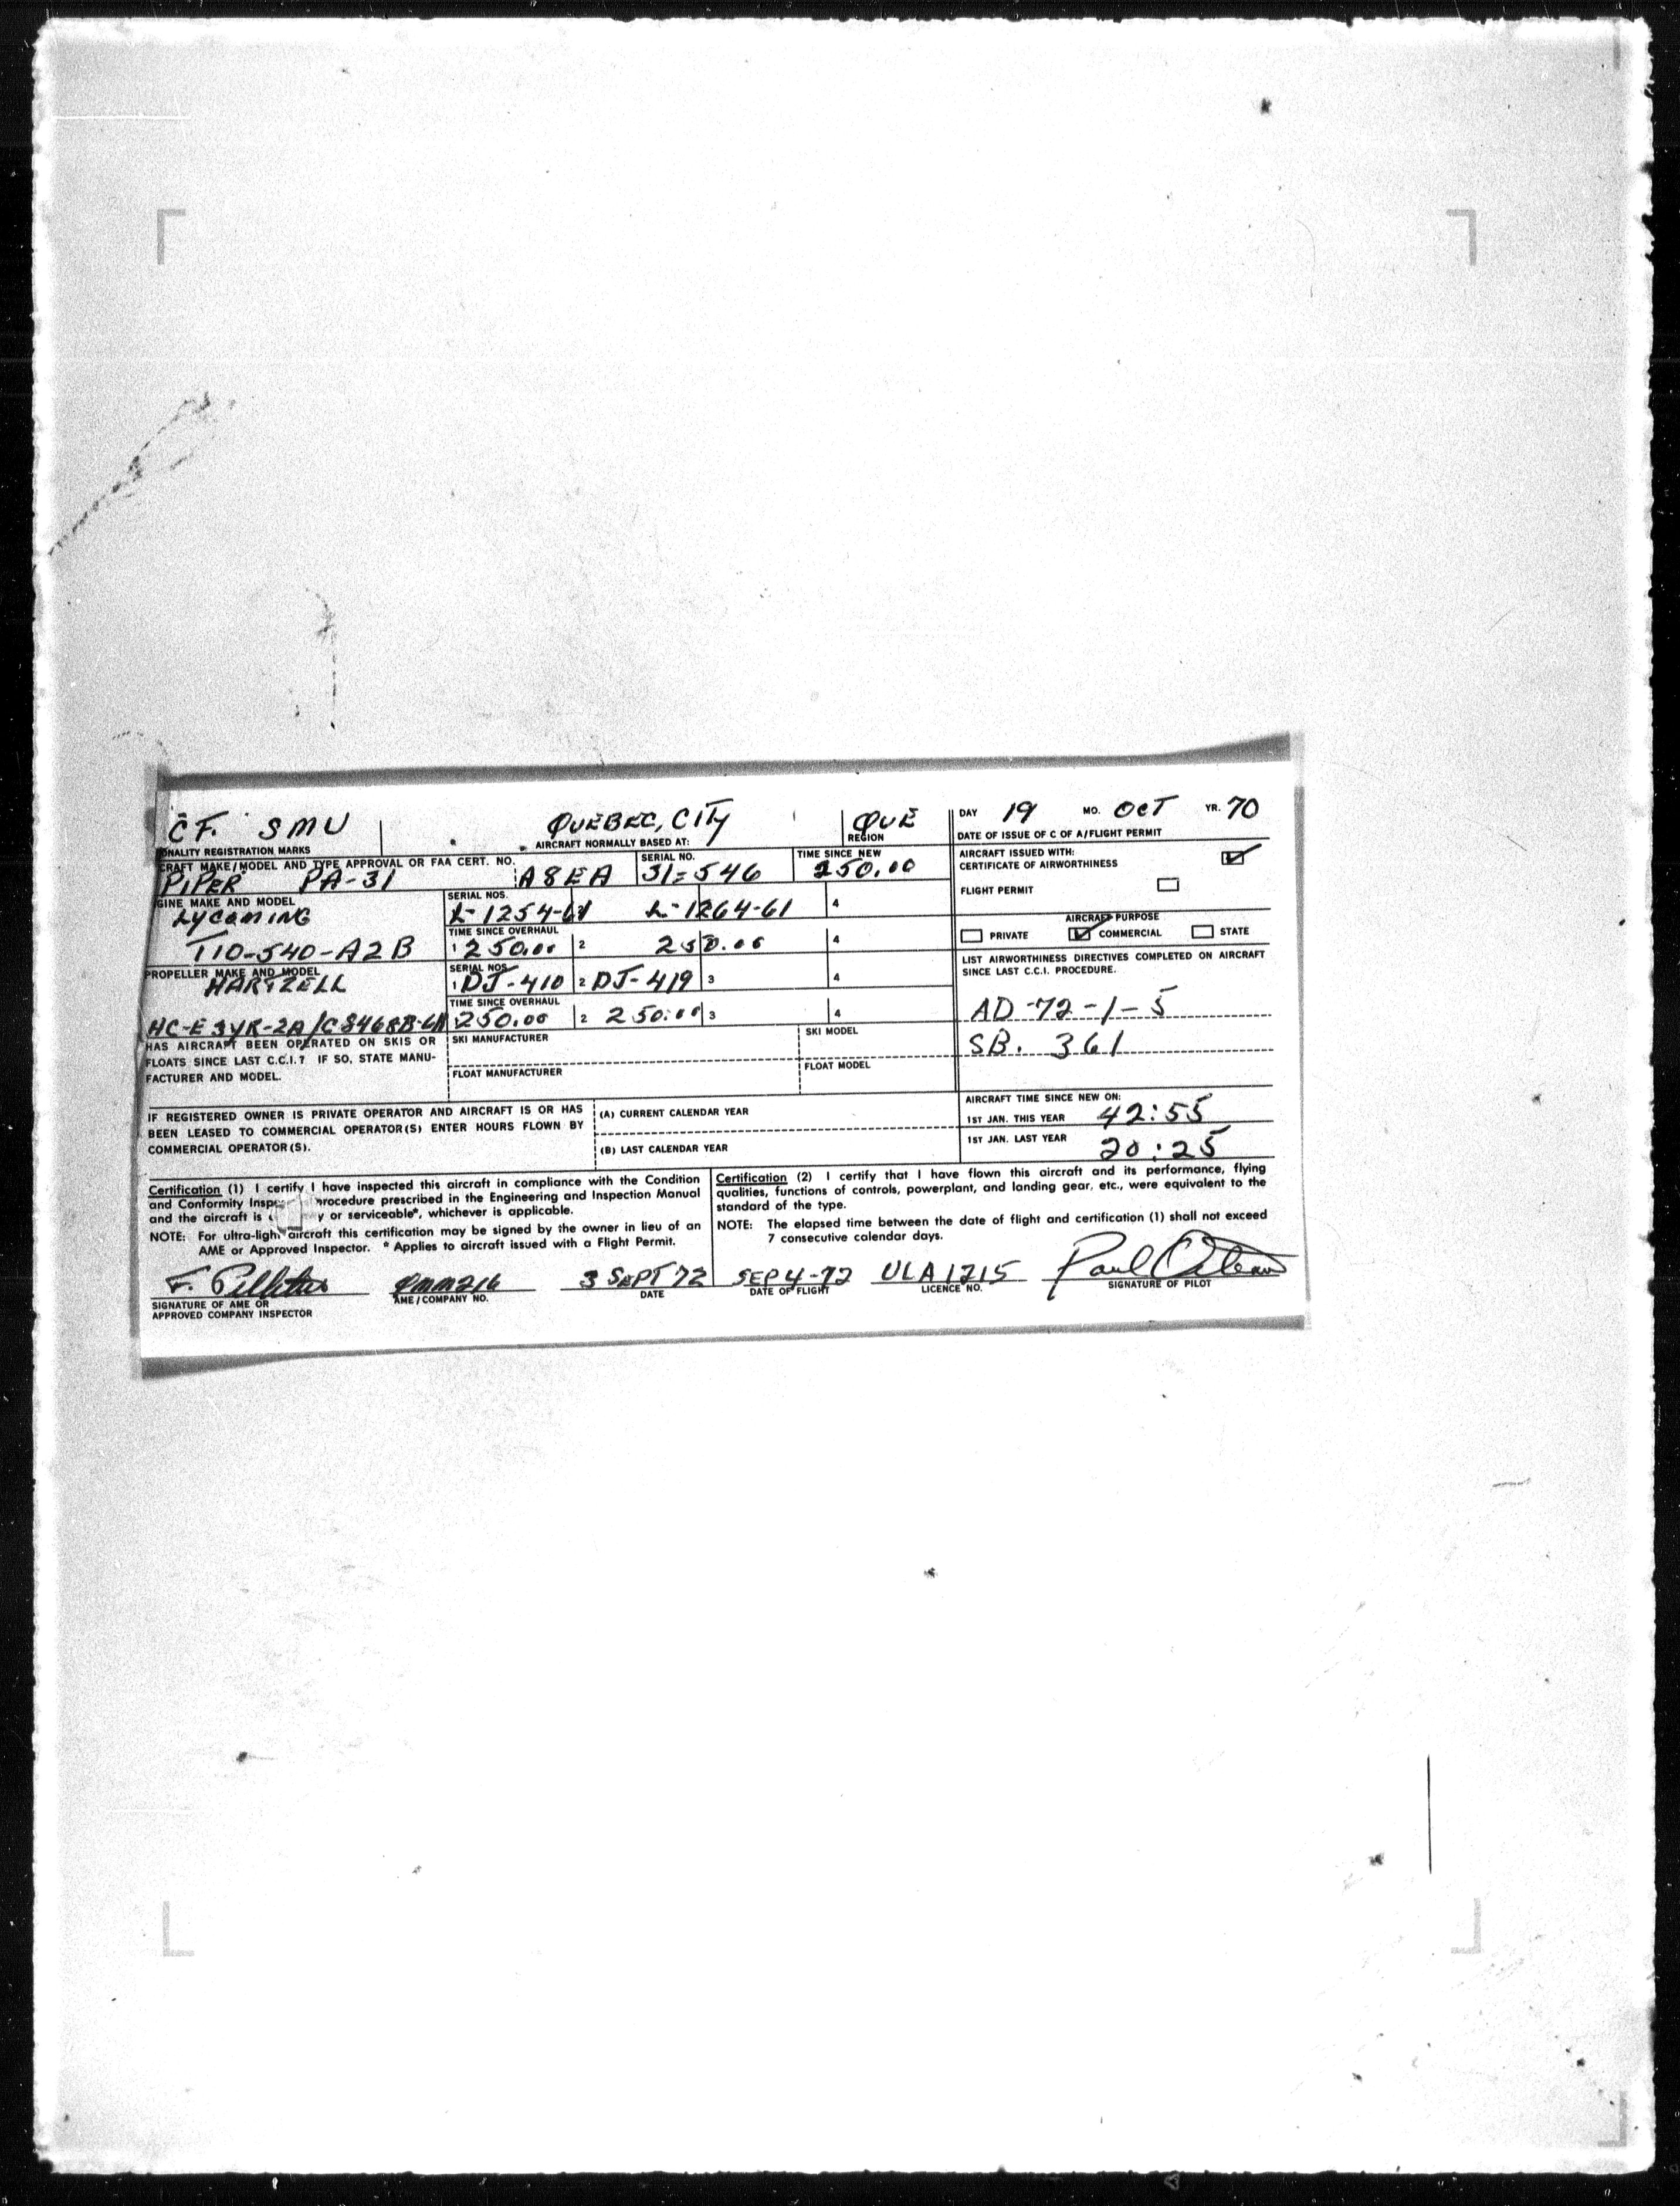 CF. SMU QUEBEC, CITY QUE DAY 19 MO. OCT YR. 70
ONALITY REGISTRATION MARKS AIRCRAFT NORMALLY BASED AT: REGION DATE OF ISSUE OF C OF A/FLIGHT PERMIT
CRAFT MAKE/MODEL AND TYPE APPROVAL OR FAA CERT. NO. SERIAL NO. TIME SINCE NEW
PIPER PA-31 A8EA 31-546 250.00
AIRCRAFT ISSUED WITH:
CERTIFICATE OF AIRWORTHINESS
FLIGHT PERMIT
GINE MAKE AND MODEL SERIAL NOS.
LYCOMING L-1254-61 L-1264-61 4
AIRCRAFT PURPOSE
PRIVATE COMMERCIAL STATE
TIME SINCE OVERHAUL
TIO-540-A2B 1 250.00 2 250.00 4
LIST AIRWORTHINESS DIRECTIVES COMPLETED ON AIRCRAFT
SINCE LAST C.C.I. PROCEDURE.
PROPELLER MAKE AND MODEL SERIAL NOS.
HARTZELL 1 DJ-410 2 DJ-419 3 4
AD-72-1-5
TIME SINCE OVERHAUL
HC-E3YR-2A/C8468B-6R 250.00 2 250.00 3 4
SB. 361
HAS AIRCRAFT BEEN OPERATED ON SKIS OR SKI MANUFACTURER SKI MODEL
FLOATS SINCE LAST C.C.I.? IF SO, STATE MANU-
FACTURER AND MODEL. FLOAT MANUFACTURER FLOAT MODEL
IF REGISTERED OWNER IS PRIVATE OPERATOR AND AIRCRAFT IS OR HAS (A) CURRENT CALENDAR YEAR
BEEN LEASED TO COMMERCIAL OPERATOR(S) ENTER HOURS FLOWN BY
COMMERCIAL OPERATOR(S). (B) LAST CALENDAR YEAR
AIRCRAFT TIME SINCE NEW ON:
1ST JAN. THIS YEAR 42:55
1ST JAN. LAST YEAR 20:25
Certification (1) I certify I have inspected this aircraft in compliance with the Condition
and Conformity Inspe procedure prescribed in the Engineering and Inspection Manual
and the aircraft is y or serviceable*, whichever is applicable.
NOTE: For ultra-light aircraft this certification may be signed by the owner in lieu of an
AME or Approved Inspector. * Applies to aircraft issued with a Flight Permit.
Certification (2) I certify that I have flown this aircraft and its performance, flying
qualities, functions of controls, powerplant, and landing gear, etc., were equivalent to the
standard of the type.
NOTE: The elapsed time between the date of flight and certification (1) shall not exceed
7 consecutive calendar days.
F. 3 SEPT 72 SEP 4-72 ULA 1215 Paul
SIGNATURE OF AME OR AME/COMPANY NO. DATE DATE OF FLIGHT LICENCE NO. SIGNATURE OF PILOT
APPROVED COMPANY INSPECTOR